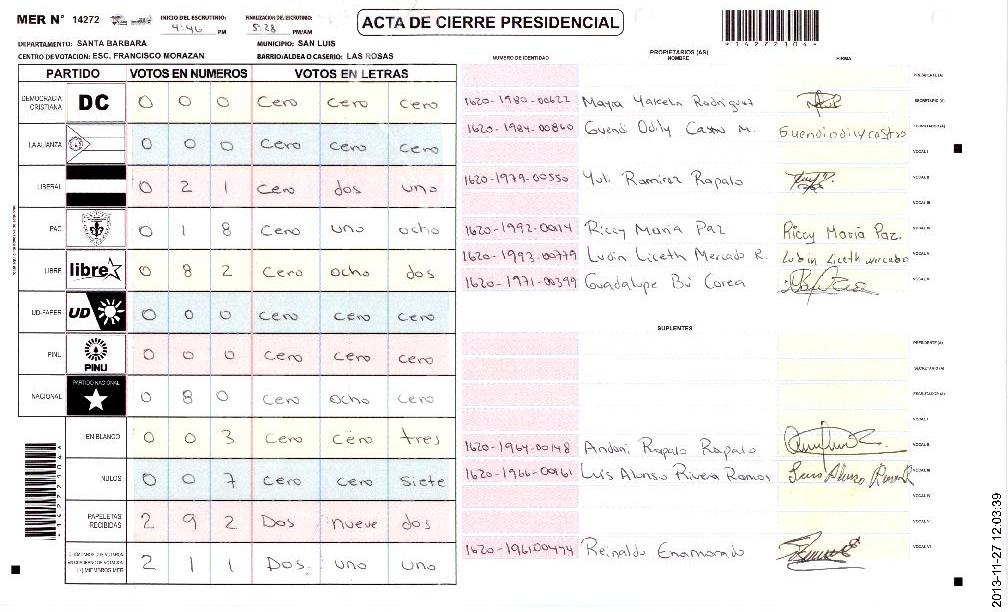 MER N° 14272
INICIO DEL ESCRUTINIO: 4:46 PM
FINALIZACION DEL ESCRUTINIO: 5:28 PM/AM
ACTA DE CIERRE PRESIDENCIAL
*1427221044*
DEPARTAMENTO: SANTA BARBARA MUNICIPIO: SAN LUIS
CENTRO DE VOTACION: ESC. FRANCISCO MORAZAN BARRIO/ALDEA O CASERIO: LAS ROSAS
PARTIDO VOTOS EN NUMEROS VOTOS EN LETRAS
DEMOCRACIA CRISTIANA DC 0 0 0 Cero Cero Cero
LA ALIANZA 0 0 0 Cero Cero Cero
LIBERAL 0 2 1 Cero dos uno
PAC 0 1 8 Cero uno ocho
LIBRE libre 0 8 2 Cero ocho dos
UD-FAPER UD 0 0 0 Cero Cero Cero
PINU PINU 0 0 0 Cero Cero Cero
NACIONAL PARTIDO NACIONAL 0 8 0 Cero Ocho Cero
EN BLANCO 0 0 3 Cero Cero tres
NULOS 0 0 7 Cero Cero Siete
PAPELETAS RECIBIDAS 2 9 2 Dos nueve dos
CIUDADANOS QUE VOTARON EN CUADERNO DE VOTACION (+) MIEMBROS MER 2 1 1 Dos uno uno
NUMERO DE IDENTIDAD PROPIETARIOS (AS) NOMBRE FIRMA
PRESIDENTE (A)
1620-1980-00622 Mayra Yakceln Rodriguez SECRETARIO (A)
1620-1984-00860 Guendi Odily Castro M. Guendiodilycastro ESCRUTADOR (A)
VOCAL I
1620-1979-00550 Yuli Ramirez Rapalo VOCAL II
VOCAL III
1620-1992-00014 Riccy Maria Paz Riccy Maria Paz. VOCAL IV
1620-1993-00779 Lubin Liceth Mercado R. Lubin Liceth mercado VOCAL V
1620-1971-00399 Guadalupe Bú Corea VOCAL VI
SUPLENTES
PRESIDENTE (A)
SECRETARIO (A)
ESCRUTADOR (A)
VOCAL I
1620-1964-00148 Andoni Rapalo Rapalo VOCAL II
1620-1966-00161 Luis Alonso Rivera Ramos VOCAL III
VOCAL IV
VOCAL V
1620-196100474 Reinaldo Enamorado VOCAL VI
2013-11-27 12:03:39